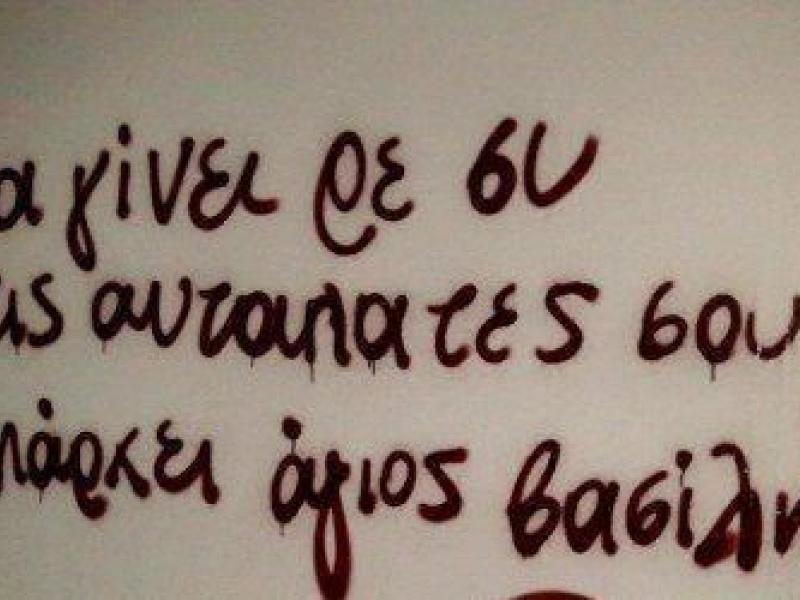 α γίνει ρε συ
ις αυταπατες σου
πάρχει άγιος βασίλη